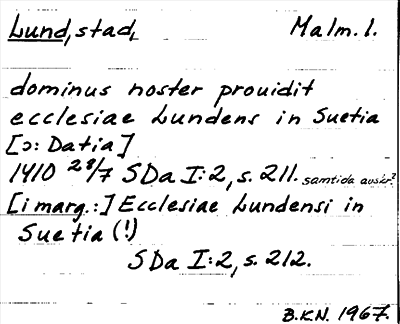 Lund, stad, Malm. l.
dominus noster prouidit
ecclesiae Lundens in Suetia
[ɔ: Datia]
1410 28/7 SDa I:2, s. 211. samtida avskr.?
[i marg.:] Ecclesiae Lundensi in
Suetia (!)
SDa I:2, s. 212.
B.KN. 1967.